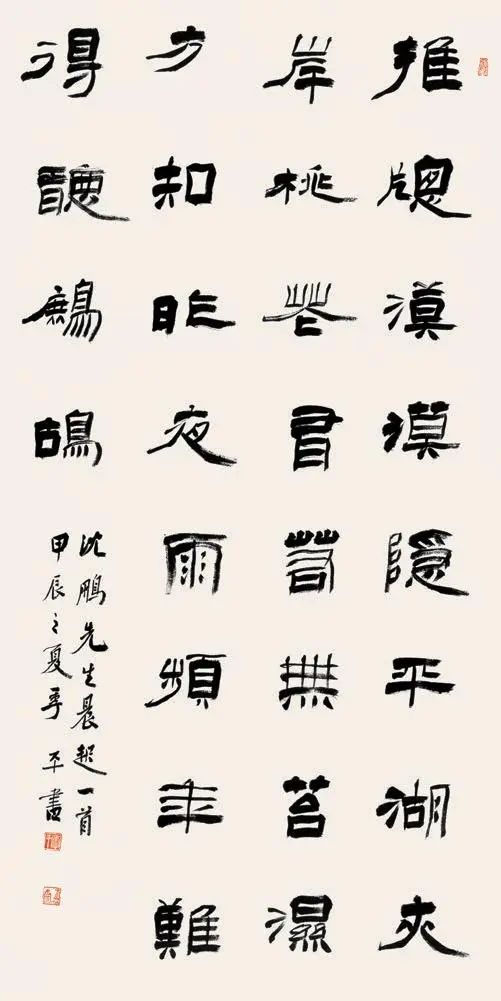 推牕漠漠隱平湖夾
岸桃花看若無苔濕
方知昨夜雨頻年難
得聽鷓鴣
沈鵬先生晨起一首
甲辰之夏季平書